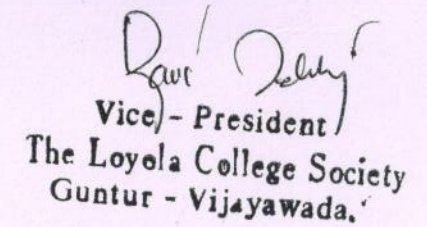 Ravi
Vice - President
The Loyola College Society
Guntur - Vijayawada.